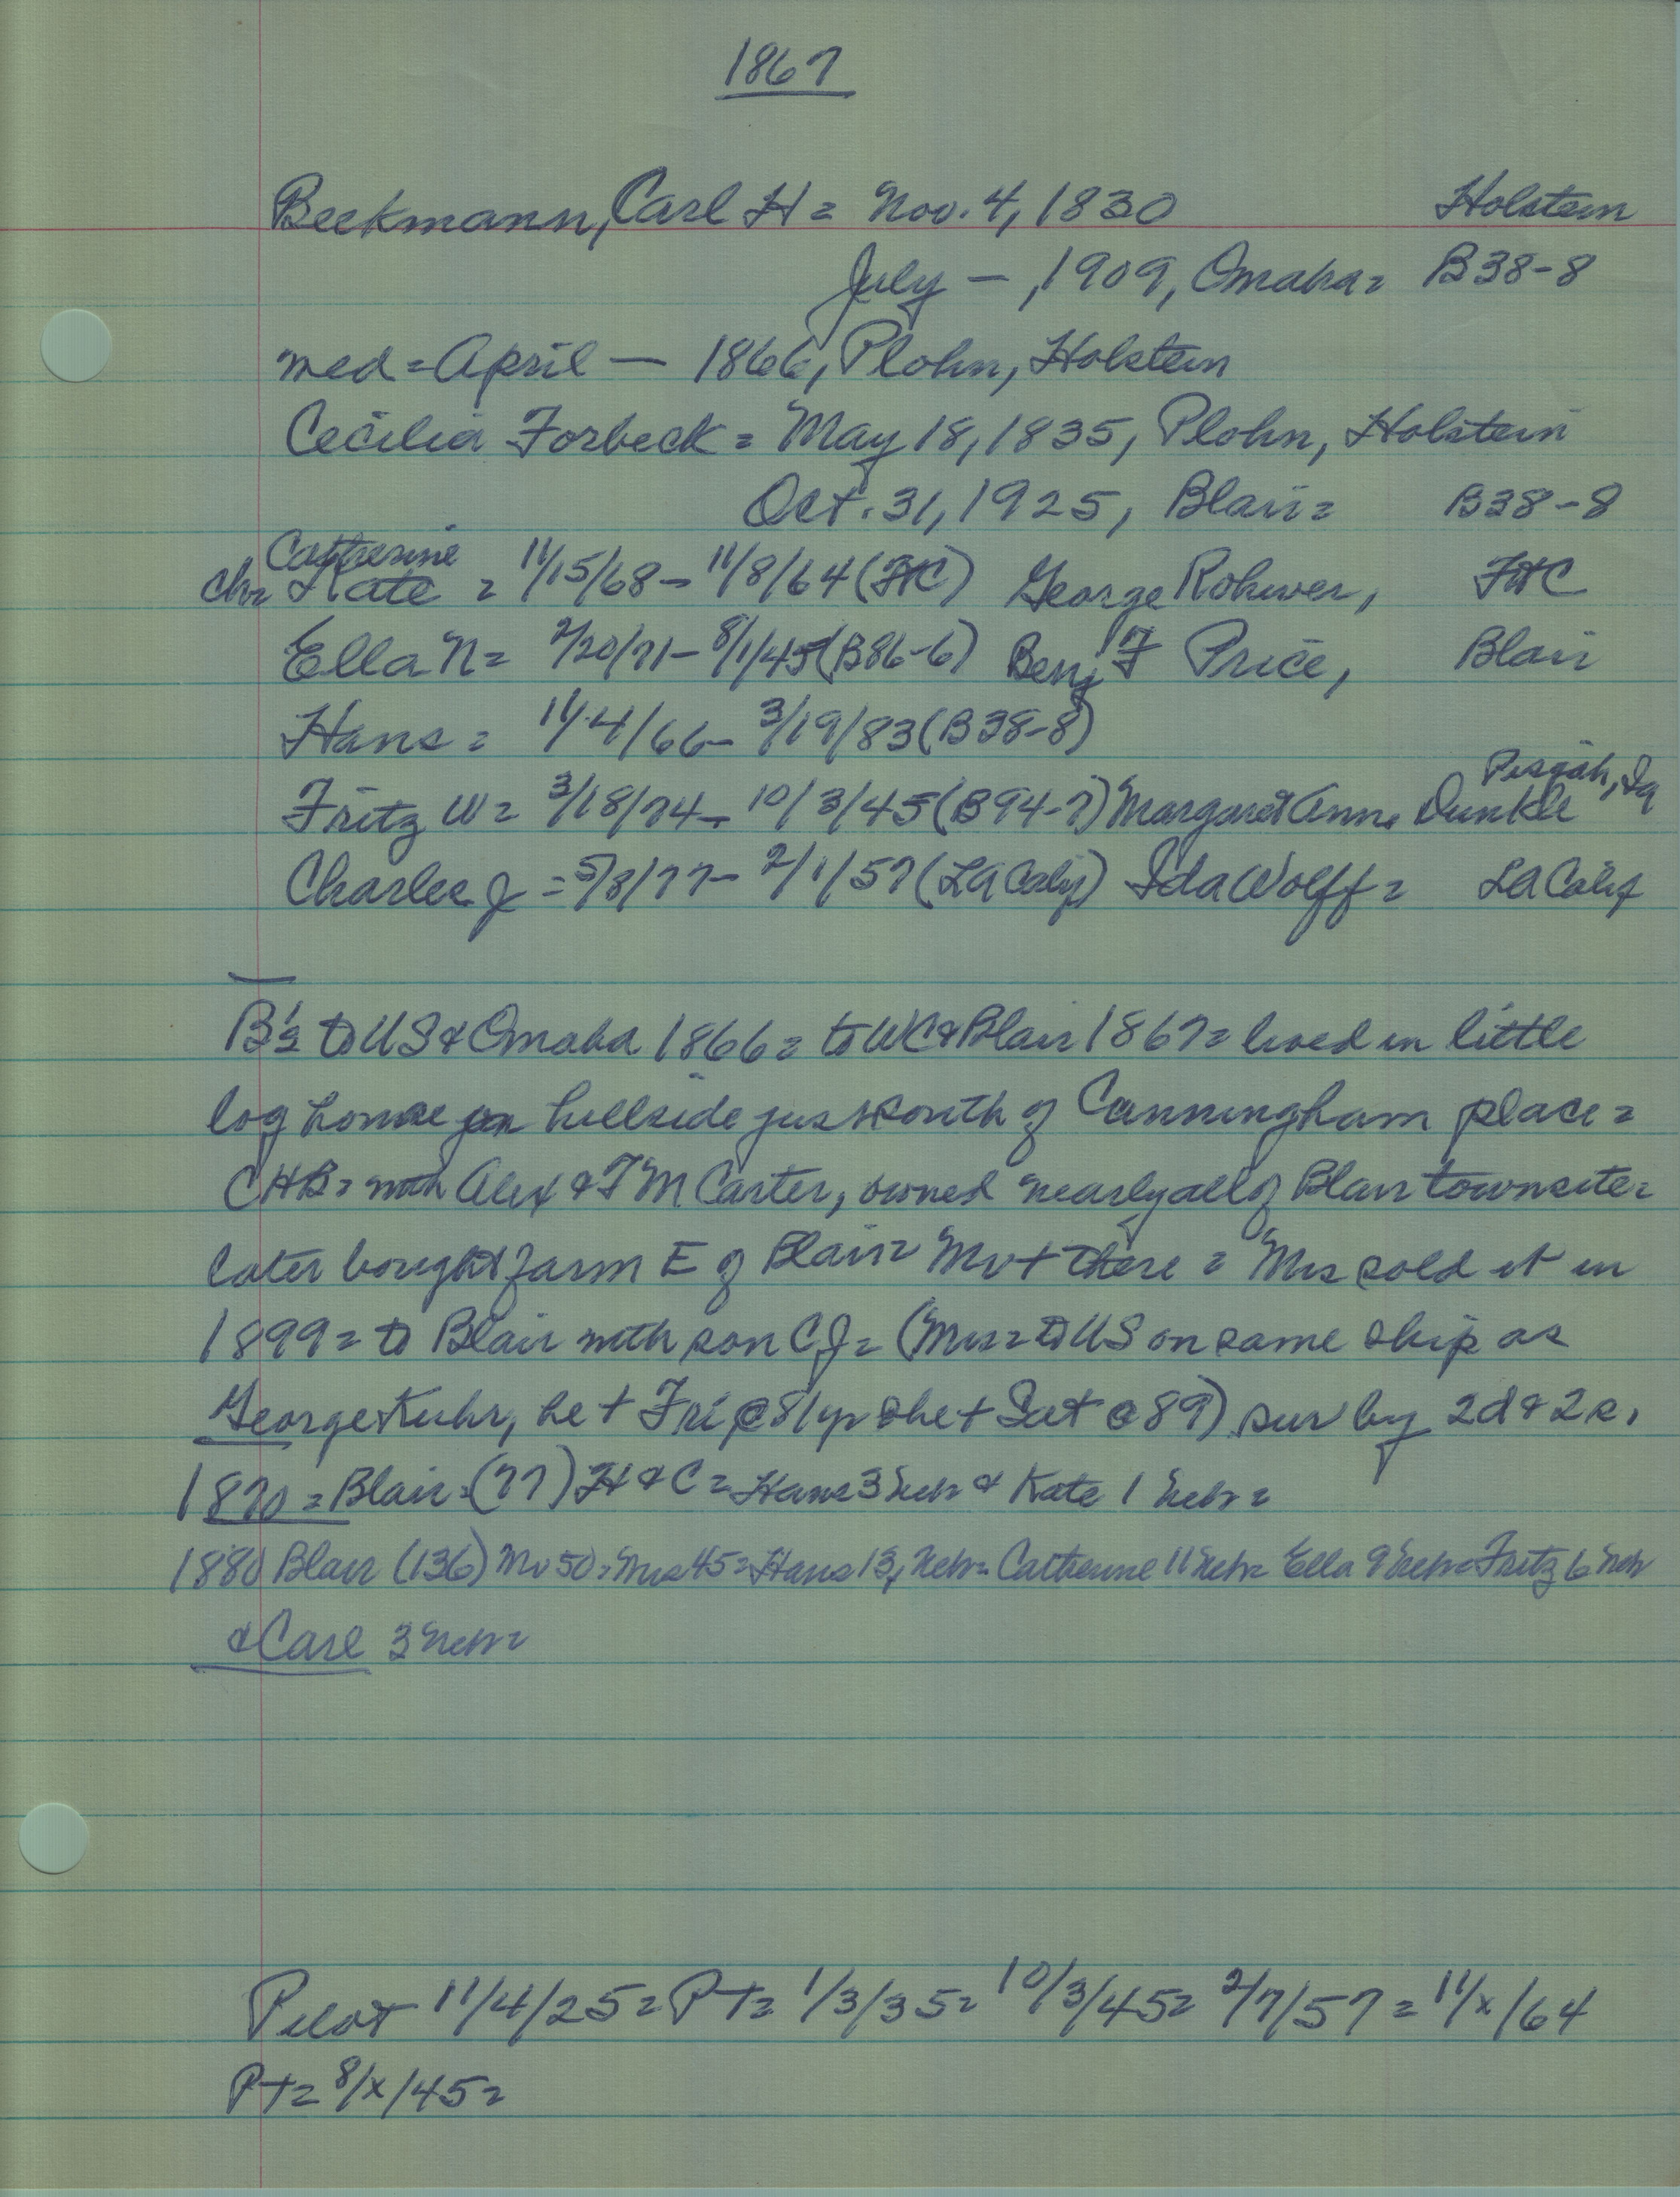 1867
Beckmann, Carl H = Nov. 4, 1830 Holstein
July — , 1909, Omaha = B38-8
med = April — 1866, Plohn, Holstein
Cecilia Forbeck = May 18, 1835, Plohn, Holstein
Oct. 31, 1925, Blair = B38-8
Catherine
ch = Kate = 11/15/68 - 11/8/64 (FtC) George Rohwer, FtC
Ella N = 2/20/71 - 8/1/45 (B86-6) Benj F Price, Blair
Hans = 11/4/66 - 3/19/83 (B38-8)
Pisgah, Ia
Fritz W = 3/18/74 - 10/3/45 (B94-7) Margaret Anne Dunkle
Charles J = 5/8/77 - 2/1/57 (LA Calif) Ida Wolff = LA Calif
B's to US & Omaha 1866 = to WC & Blair 1867 = lived in little
log house on hillside just south of Cunningham place =
CHB = with Alex & T M Carter, owned nearly all of Blair townsite =
later bought farm E of Blair = Mr + there = Mrs sold it in
1899 = to Blair with son CJ = (Mrs = to US on same ship as
George Kuhr, he + Fri @ 81yr she + Sat @ 89) sur by 2d & 2s,
1870 = Blair = (77) H & C = Hans 3 Neb = & Kate 1 Neb =
1880 Blair (136) Mr 50 = Mrs 45 = Hans 13, Neb = Catherine 11 Neb = Ella 9 Neb = Fritz 6 Neb
& Carl 3 Neb =
Pilot 11/4/25 = P T = 1/3/35 = 10/3/45 = 2/7/57 = 11/x/64
P T = 8/x/45 =